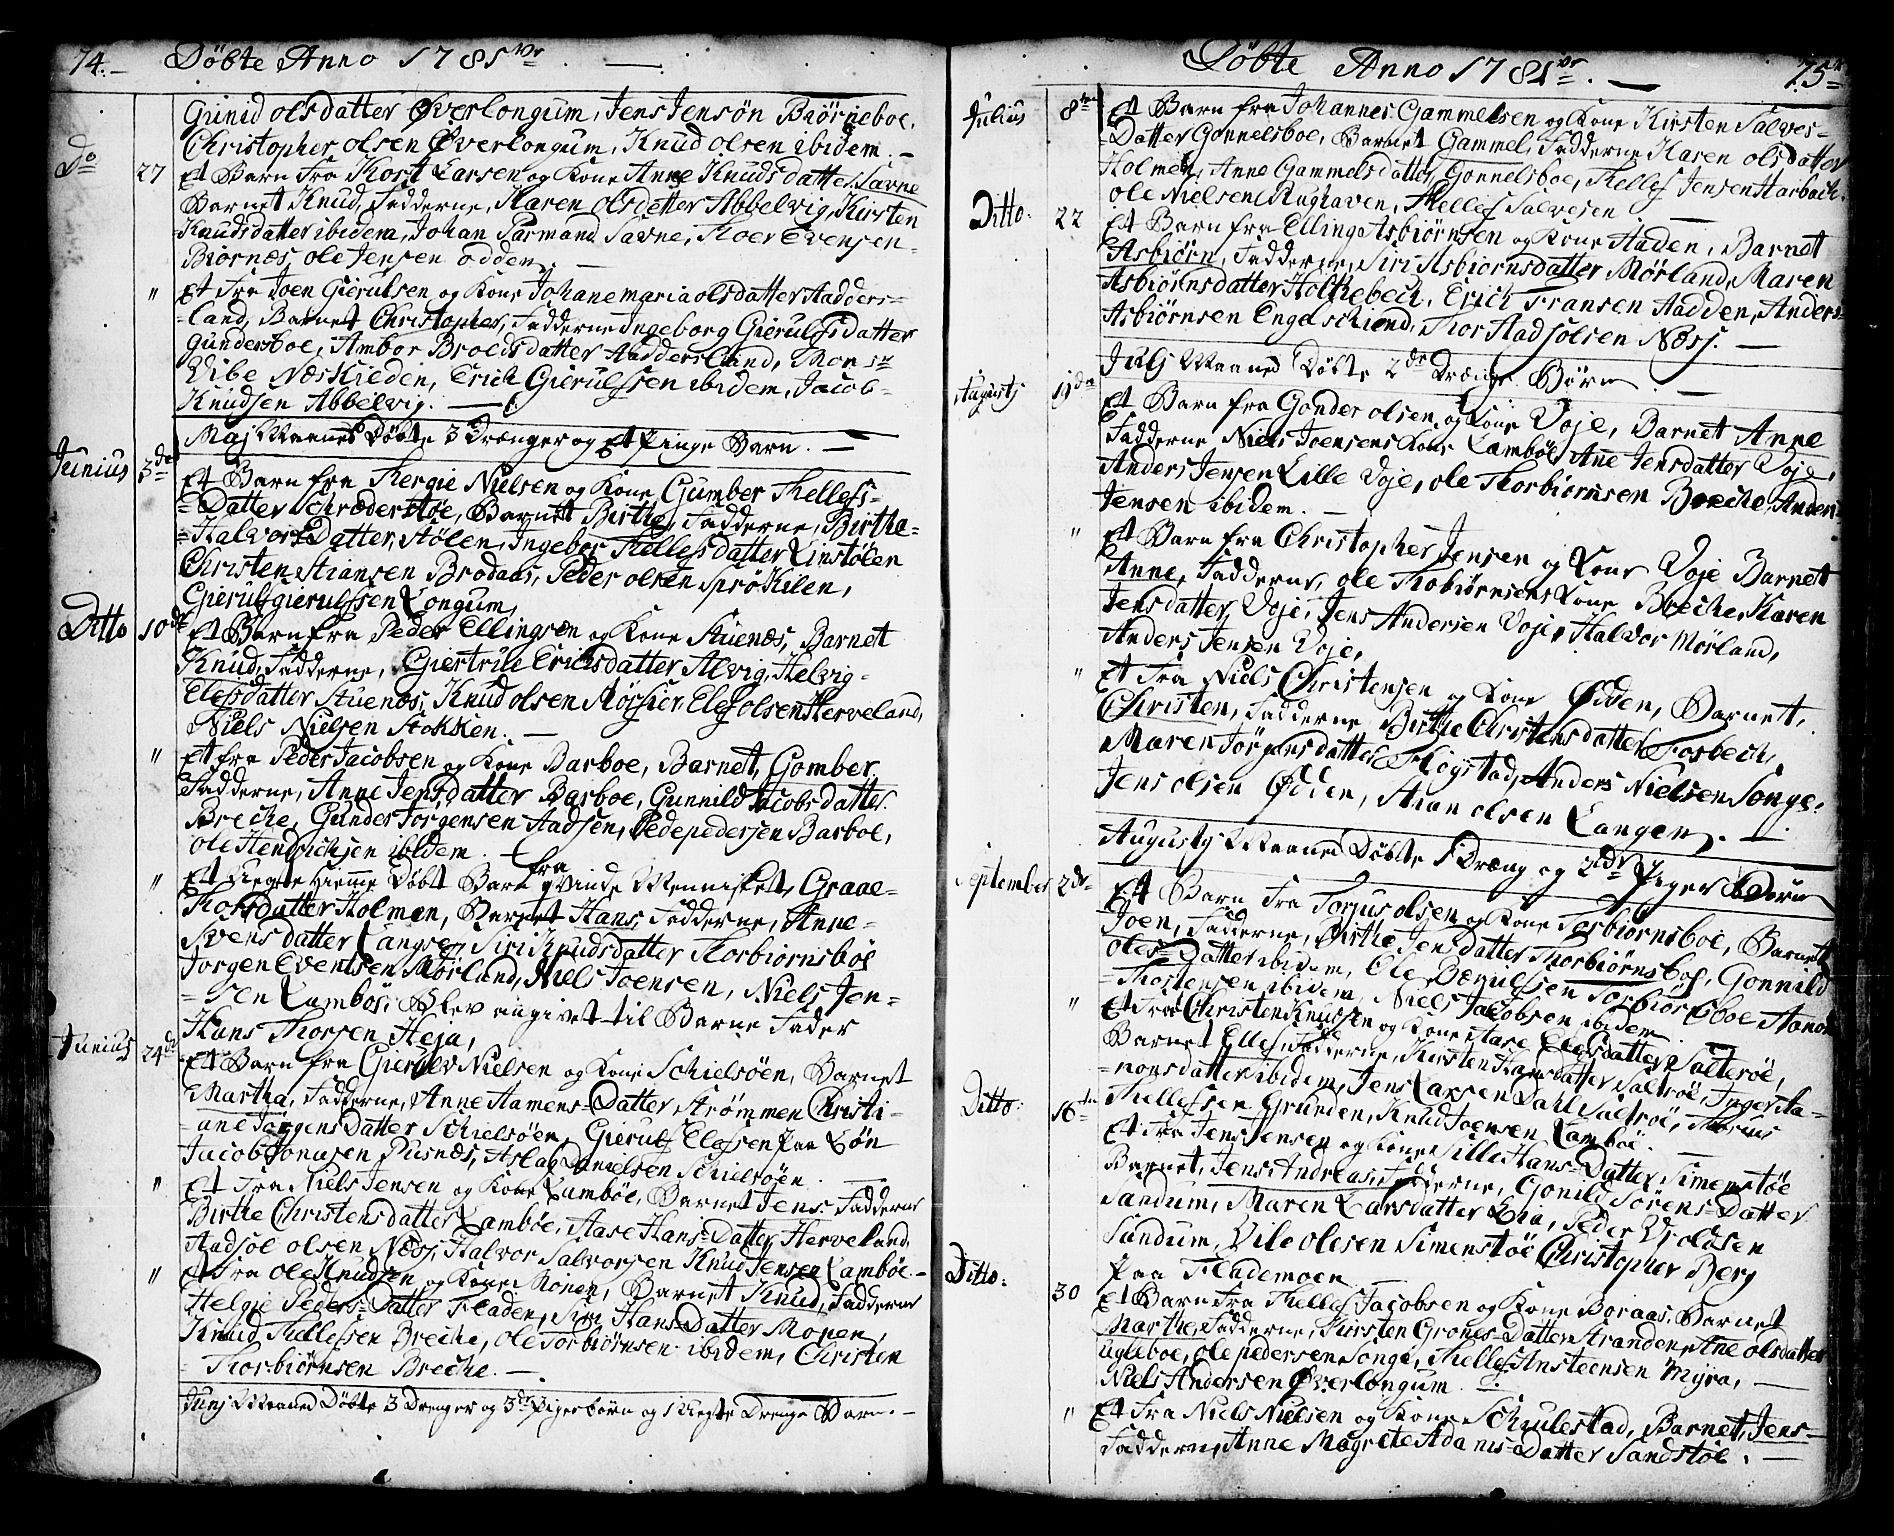 74.
Døbte Anno 1781
Gunid olsdatter Øverlongum, Jens Jensøn Biørneboe,
Christopher olsen Øverlongum, Knud olsen ibidem. –
Do 27 Et Barn fra Kort Larsen og Kone Anne Knudsdatter Savne
Barnet Knud, Fadderne, Karen olsdatter Abbelvig, Kirsten
Knudsdatter ibidem, Johan Parmand Savne, Thoer Evensen
Biørnæs, ole Jensen odden. –
" Et Fra Joen Gierulsen og Kone Johane maria olsdatter Aadders-
-land, Barnet Christopher, Fadderne Ingeborg Gierulssdatter
Gundersboe, Ambor Broldsdatter Aaddersland, Mons
Vibe Næskieden, Erich Gierulssen ibidem, Jacob
Knudsen Abbelvig. –
Maj Maaned Døbte 3 Drænger og Et Pinge Barn. –
Junius 3de Et Barn fra Thergie Nielsen og Kone Gumber Thellefs-
-Datter Schræderstøe, Barnet Birthe, Fadderne, Birthe
-Halvors Datter StøLen, Ingebor Thellefsdatter Linstølen
Christen Stiansen Brodaas, Peder olsen Sprøkilen,
Gieruls gierulssen Longum,
Ditto 10de Et Barn fra Peder Ellingsen og Kone Stuenæs, Barnet
Knud, Fadderne, Giertrue Erichsdatter Alvig, Helvig
Elefsdatter Stuenæs, Knud olsen Røssier, Elef olsen Herveland,
Niels Nielsen Stokken. –
" Et fra Peder Jacobsen og Kone Barboe, Barnet, Gomber
Fadderne, Anne Jensdatter Barboe, Gunnild Jacobsdatter
Breche, Gunder Jorgensen Aadsen, Pede pedersen Barboe,
ole Hendrichsen ibidem. –
" Et Uegte Hieme Døbt Barn fra qvinde Mennisket, Graae-
Thorsdatter Holmen, Barnet Hans, Fadderne, Anne
Svensdatter Langsæ, Siri Knudsdatter Thorbiornsboe
Jorgen Eventsen Mørland, Niels Joensen, Niels Jen-
-sen Lambøe, Blev angivet til Barne Fader
Hans Thorsen Heja,
Junius 24de Et Barn fra Gierulv Nielsen og Kone Schielsøen, Barnet
Martha, Fadderne, Anne Aamens-Datter Strømmen Christi-
-ane Jørgens Datter Schielsøen, Gieruls Elefsen Paa Løn
Jacob Jonusen Pusnæs, Aslag Danielsen Schielsøen. –
" Et Fra Niels Jensen og Kone Lambøe, Barnet Jens Fadderne
Birthe Christensdatter Lambøe, Aase Hans-Datter Herveland,
Aadsøl olsen Næss, Halvor Salvorsen Knud Jensen Lambøe. –
" Et Fra Ole Knudsen og Kone Monen, Barnet Knud, Fadderne
Helgie Peders-Datter Fladen, Siri Hans Datter Monen,
Knud Thellefsen Breche, Ole Torbiørnsen ibidem, Christen
Thorbiørnsen Breche. –
Junj Maaned Døbte 3 Drenger og 3de Piger børn og 1 Uegte Drenge Barn. –
Døbte Anno 1781
75
Julius 8de Et Barn fra Johannes Gammelsen og Kone Kirsten Salves-
-Datter Gonnelsboe, Barnet Gammel, Fadderne Karen olsdatter
Holmen, Anne Gammelsdatter Gonnelsboe, Thellef Jensen Harbach,
Ole Nielsen Rughaven, Thellef Salvesen –
Ditto 22 Et Barn fra Elling Asbiørnsen og Kone Aaden, Barnet
Asbiørn, Fadderne, Siri Asbiørnsdatter Mørland, Maren
Asbiørnsdatter Holthebech, Erich Fransen Aadden, Anders
Asbiørnsen Engelschiend, Thor Aadsølsen Næss. –
Julj Maaned Døbte 2de Drænge Børn –
Augusty Et Barn fra Gonder olsen og Kone Voje, Barnet Anne
Fadderne Niels Joensens Kone Lambøe, Ane Jensdatter Voje,
Anders Jensen Lille Voje, ole Thorbiørnsen Breche, Anders
Jensen ibidem. –
" Et Barn fra Christopher Jensen og Kone Voje Barnet
Anne, Fadderne, ole Thobiørnsens Kone Breche, Karen
Jensdatter Voje, Jens Andersen Voje, Halvor Mørland,
Anders Jensen Voje,
" Et Fra Niels Christensen og Kone Ødden, Barnet,
Christen, Fadderne Birthe Christensdatter Fosbech,
Maren Jørgensdatter Flogstad, Anders Nielsen Songe.
Jens olsen Ødden, Stian olsen Langen. –
Augusty Maaned Døbte 1 Dræng og 2de Piger Børn
September 2de Et Barn Fra Torjus olsen og Kone Torbiørnsboe, Barnet
Joen, Fadderne, Birthe Jensdatter Thorbiørnsboe, Gonnild
oles-Datter ibidem, Ole Torbiørnsboe
Thostensen ibidem, Niels Jacobsen ibidem
" Et Fra Christen Knudsen og Kone Aase Elefsdatter Salterøe,
Barnet Ellef, Fadderne, Kirsten Hansdatter Saltrøe, Inger Ha-
-nonsdatter ibidem, Jens Larsen Dahl Saltrøe, Thomas
Thellefsen Grunden, Knud Joensen Lambøe
Ditto 16de Et Fra Jens Jensen og Kone Sille Hans-Datter Simenstøe
Barnet, Jens Andreas, Fadderne, Gonild Sørens-Datter
Sandum, Maren Larsdatter Lia, Peder
Sandum, Vile olesen Simenstøe Christopher Berg
Paa Flademoen
Ditto 30 Et Barn Fra Thellef Jacobsen og Kone Boraas, Barnet
Marthe, Fadderne, Kirsten Grones-Datter Stranden, Ane olsdatter
ugleboe, ole pedersen Songe, Thellef Anstensen Myra,
Niels Andersen Øverlongum. –
" Et Fra Niels Nielsen og Kone Schulestad, Barnet, Jens-
Fadderne, Anne Magrete Adams-Datter Sandstøe. –